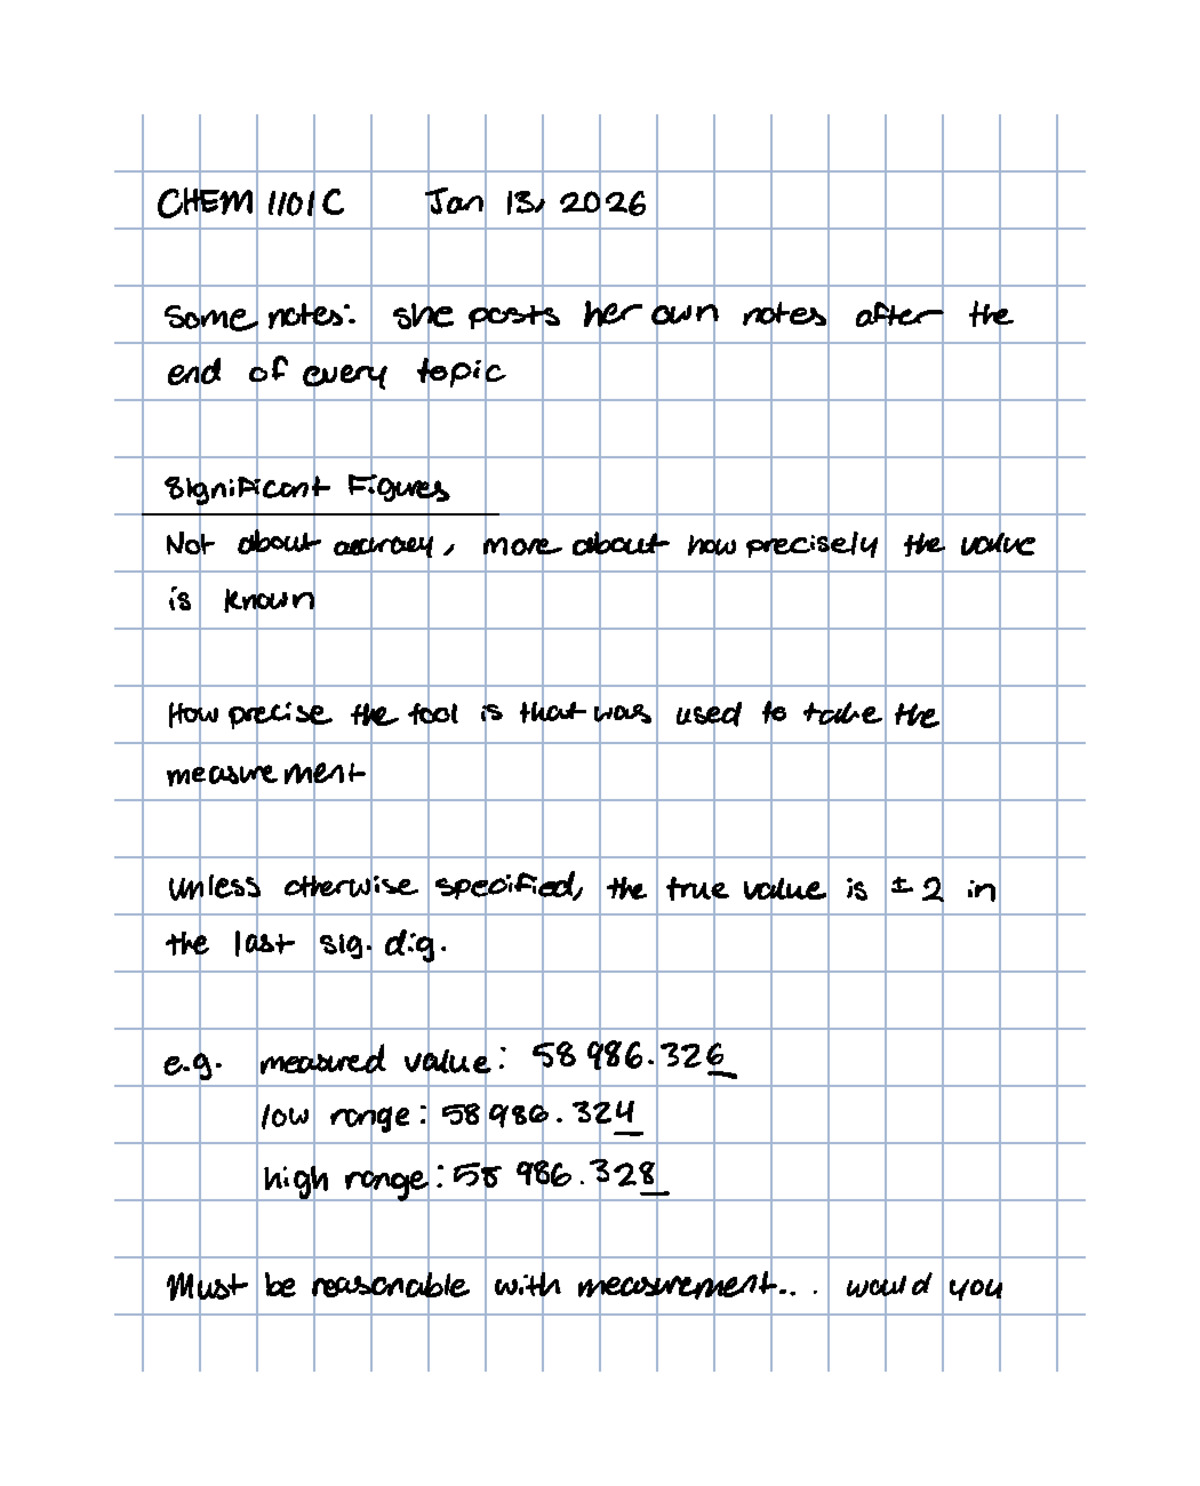 CHEM 1101C Jan 13, 2026
Some notes: she posts her own notes after the
end of every topic
Significant Figures
Not about accuracy, more about how precisely the value
is known
How precise the tool is that was used to take the
measurement
Unless otherwise specified, the true value is ± 2 in
the last sig. dig.
e.g. measured value: 58 986.326
low range: 58 986.324
high range: 58 986.328
Must be reasonable with measurement... would you